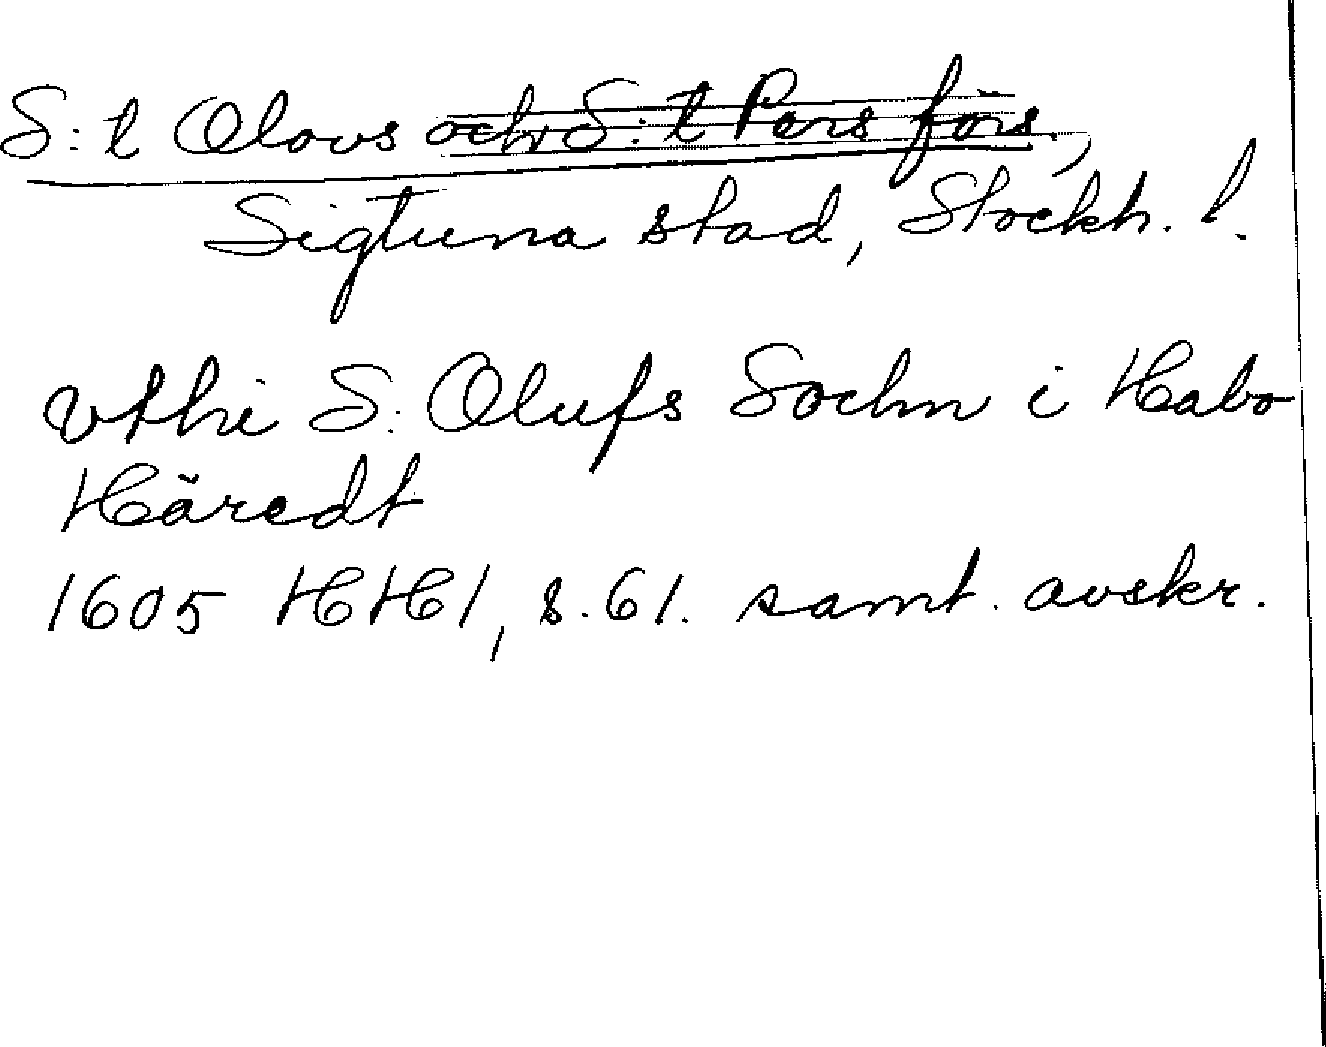 S:t Olovs och S:t Pers förs.,
Sigtuna stad, Stockh. l.
vthi S. Olufs Sochn i Habo
Häredt
1605 HH1, s. 61. samt. avskr.